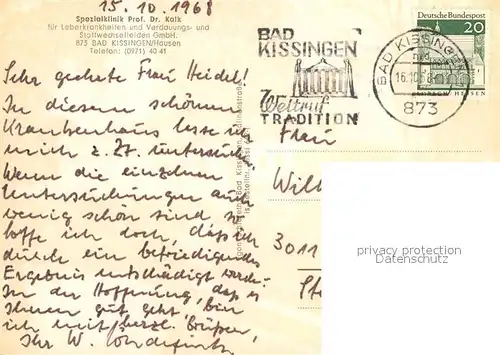 15.10.1968
Spezialklinik Prof. Dr. Kalk
für Leberkrankheiten und Verdauungs- und
Stoffwechselleiden GmbH.
873 BAD KISSINGEN/Hausen
Telefon: (0971) 40 41
Sehr geehrte Frau Heidel!
In diesem schönen
Krankenhaus lasse ich
mich z. Zt. untersuchen.
Wenn die einzelnen
Untersuchungen auch
wenig schön sind so
hoffe ich doch, daß ich
durch ein befriedigendes
Ergebnis entschädigt werde.
In der Hoffnung, daß es
Ihnen gut geht, bin
ich mit herzl. Grüßen,
Ihr W.
BAD
KISSINGEN
Weltruf
TRADITION
BAD KISSINGEN
16.10.68
873
Deutsche Bundespost
20
HESSEN
Frau
Will
3011
privacy protection
Datenschutz